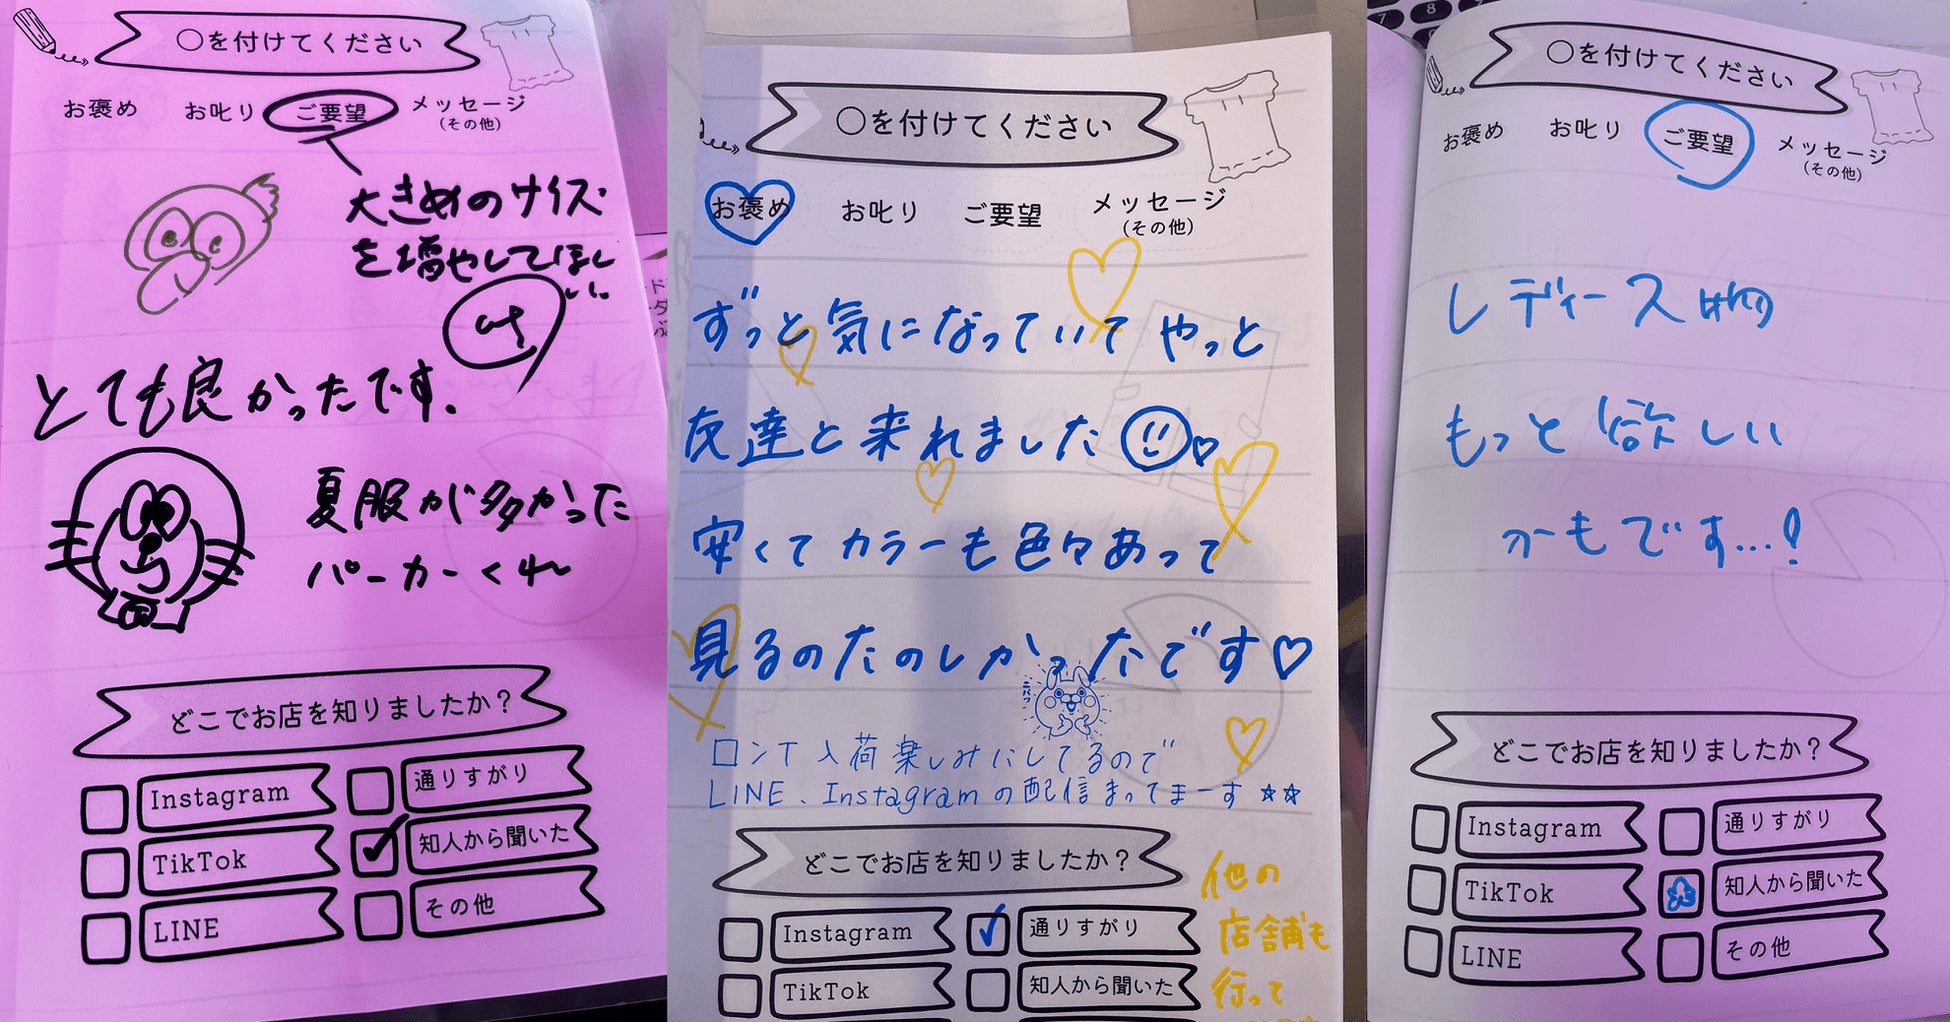 ○を付けてください
お褒め お叱り ご要望 メッセージ
(その他)
大きめのサイズ
を増やしてほしい
とても良かったです.
夏服が多かった
パーカーくれ
どこでお店を知りましたか?
Instagram 通りすがり
TikTok 知人から聞いた
LINE その他
○を付けてください
お褒め お叱り ご要望 メッセージ
(その他)
ずっと気になっていて やっと
友達と来れました
安くてカラーも色々あって
見るのたのしかったです♡
ロンT入荷楽しみにしてるので
LINE、Instagramの配信まってまーす☆☆
どこでお店を知りましたか?
Instagram 通りすがり
TikTok 知人から聞いた
他の
店舗も
行って
○を付けてください
お褒め お叱り ご要望 メッセージ
(その他)
レディース物
もっと欲しい
かもです...!
どこでお店を知りましたか?
Instagram 通りすがり
TikTok 知人から聞いた
LINE その他